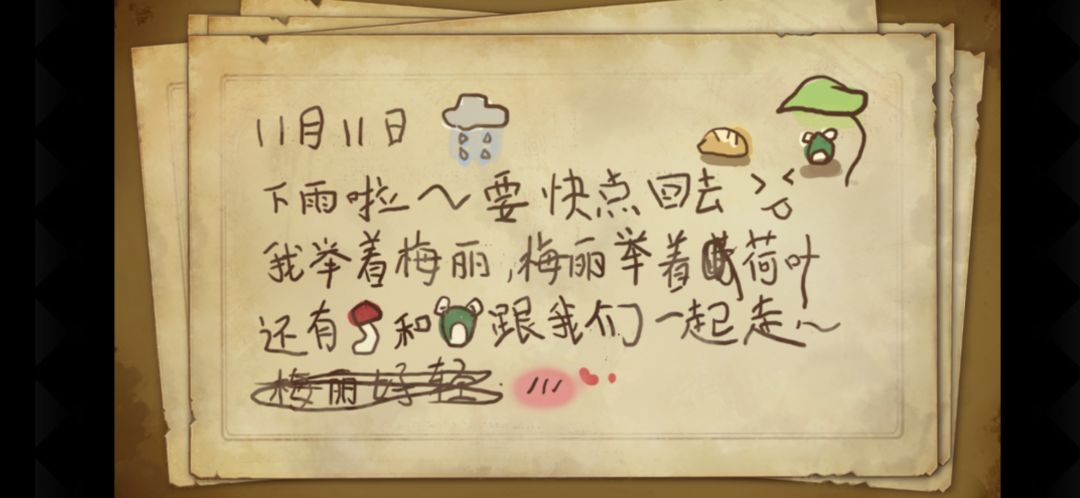 11月11日
下雨啦～要快点回去
我举着梅丽，梅丽举着荷叶
还有和跟我们一起走～
梅丽好轻